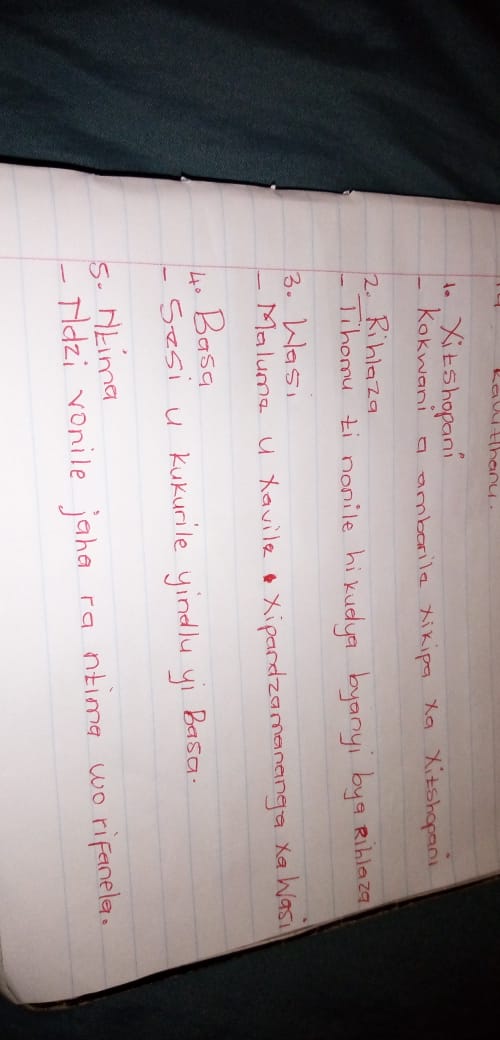 1. Xitshopani
- kokwani a ambarile xikipa xa xitshopani
2. Rihlaza
- Tihomu ti nonile hi kudya byanyi bya Rihlaza
3. Wasi
- Maluma u xavile xipandzamananga xa Wasi
4. Basa
- Sesi u kukurile yindlu yi Basa.
5. Ntima
- Ndzi vonile jaha ra ntima wo rifanela.